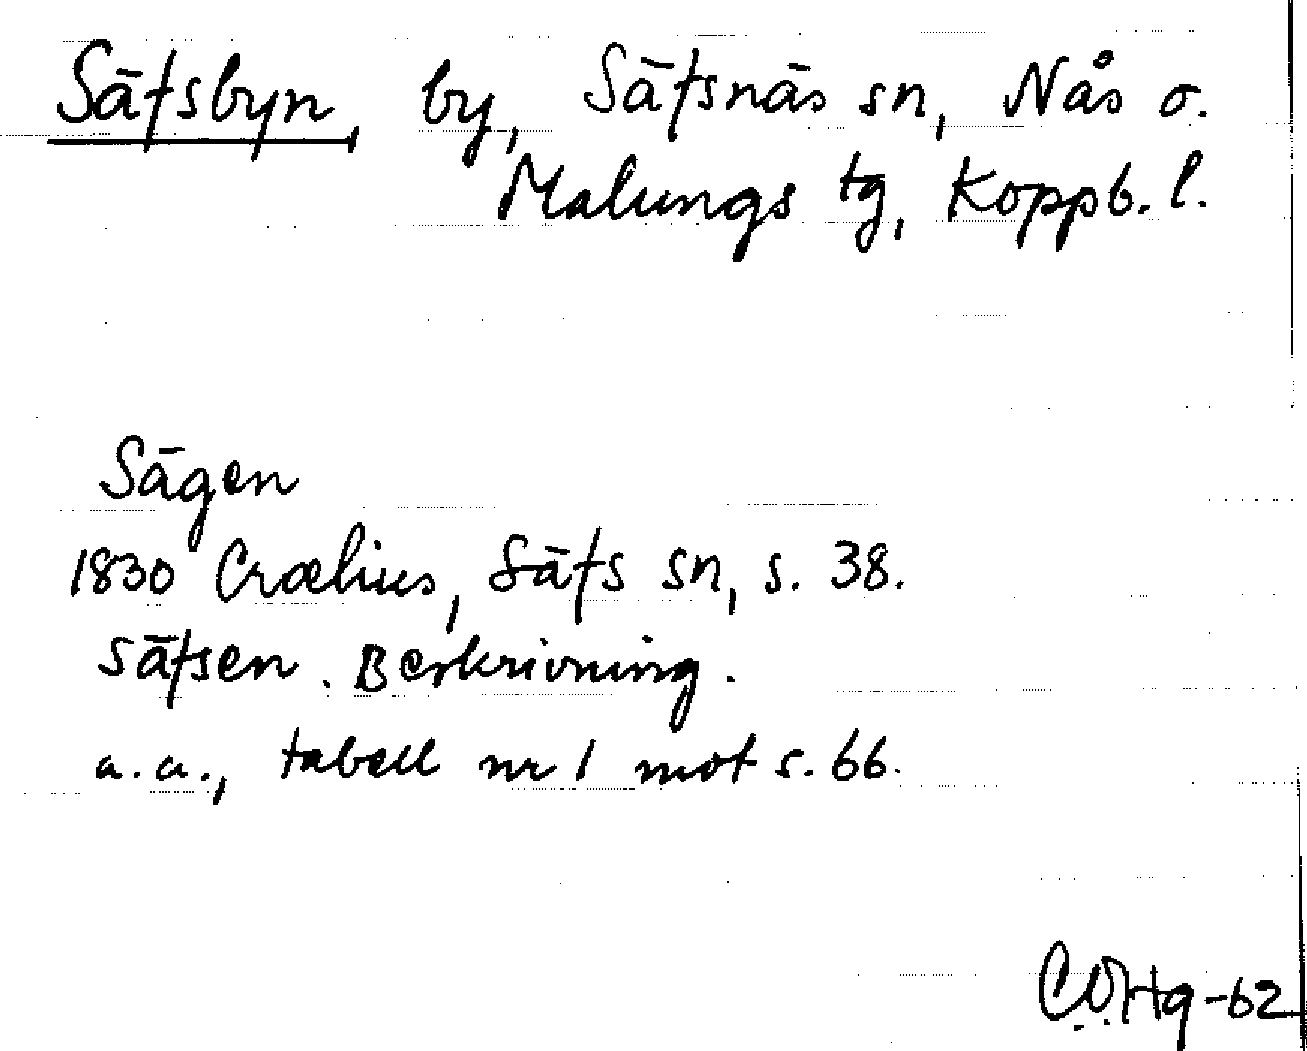 Säfsbyn, by, Säfsnäs sn, Nås o.
Malungs tg, Koppb. l.
Sägen
1830 Crælius, Säfs sn, s. 38.
Säfsen. Beskrivning.
a.a., tabell nr 1 mot s. 66.
-62